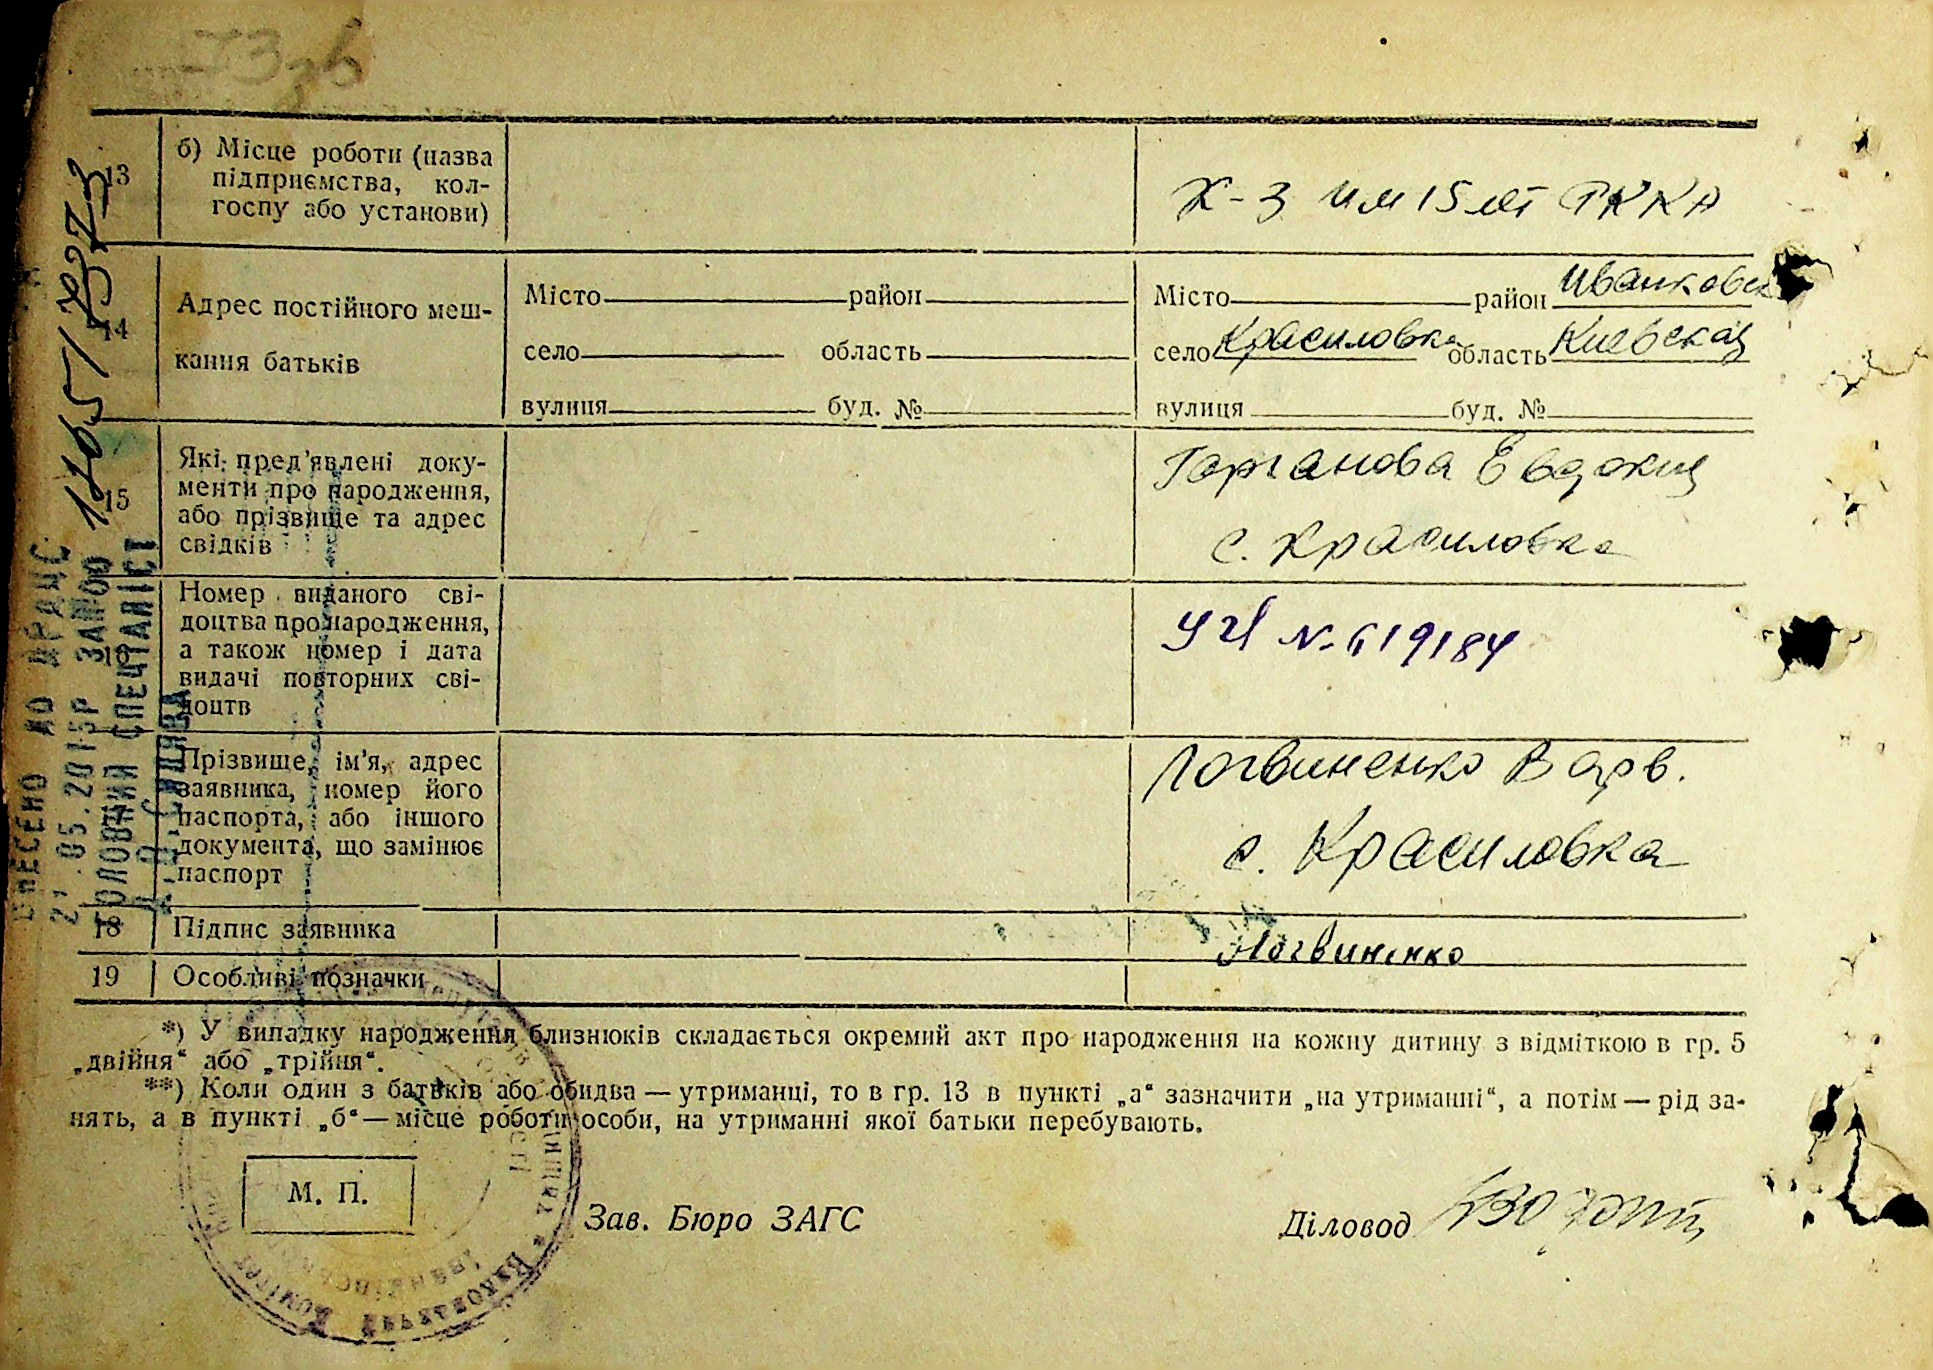 13
б) Місце роботи (назва
підприємства, кол-
госпу або установи)
К-З им 15 лет РККА
14
Адрес постійного меш-
кання батьків
Місто район
село область
вулиця буд. №
Місто район Иванковск
село Красиловка область Киевская
вулиця буд. №
15
Які пред’явлені доку-
менти про народження,
або прізвище та адрес
свідків
Евдокия
с. Красиловка
16
Номер виданого сві-
доцтва про народження,
а також номер і дата
видачі повторних сві-
доцтв
№ 619184
Прізвище, ім’я, адрес
заявника, номер його
паспорта, або іншого
документа, що замінює
паспорт
Логвиненко Варв.
с. Красиловка
18
Підпис заявника
Логвиненко
19
Особливі позначки
*) У випадку народження близнюків складається окремий акт про народження на кожну дитину з відміткою в гр. 5
„двійня“ або „трійня“.
**) Коли один з батьків або обидва — утриманці, то в гр. 13 в пункті „а“ зазначити „на утриманні“, а потім — рід за-
нять, а в пункті „б“ — місце роботи особи, на утриманні якої батьки перебувають.
М. П.
Зав. Бюро ЗАГС
Діловод
ВНЕСЕНО ДО ДРАЦС
21.05.2015Р ЗА №00
ГОЛОВНИЙ СПЕЦІАЛІСТ
Виконавчий Комітет